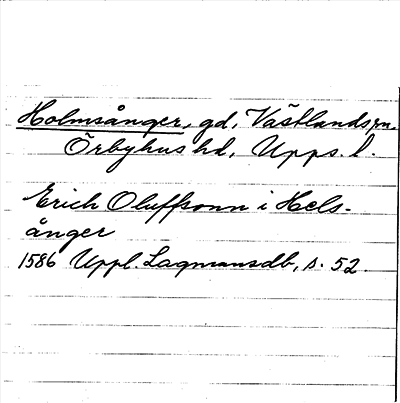 Holmsånger, gd, Västlands sn,
Örbyhus hd, Upps. l.
Erich Oluffsonn i Hels-
ånger
1586 Uppl. Lagmansdb, s. 52.